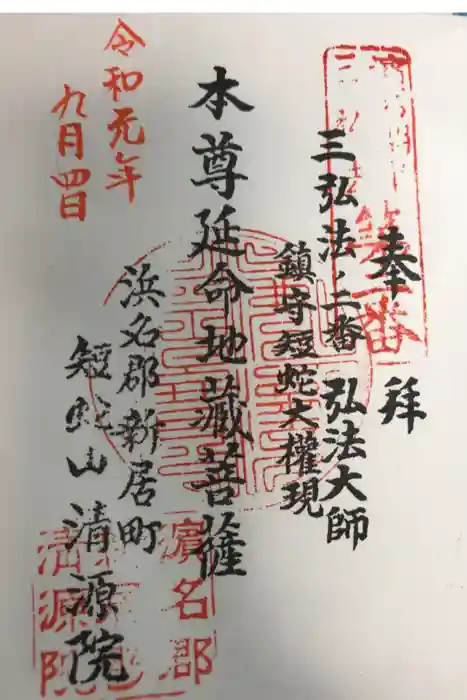 奉拜
三弘法ノ二番 弘法大師
鎮守短蛇大權現
本尊延命地蔵菩薩
浜名郡新居町
短蛇山清源院
令和元年
九月四日
第二番
濱名郡
清源院